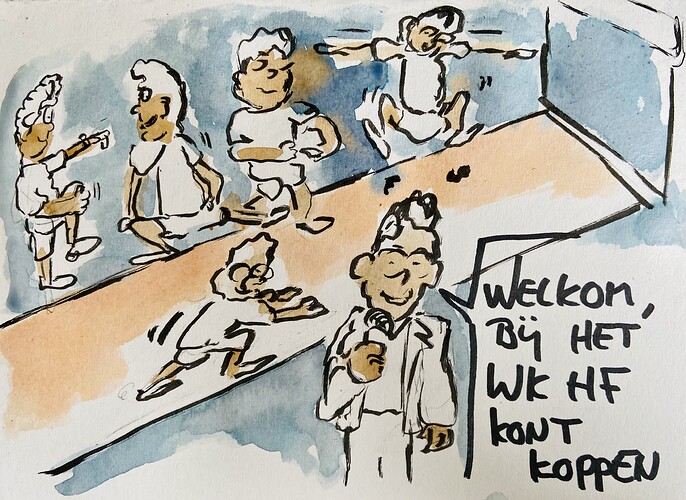 WELKOM,
BIJ HET
WK HF
KONT
KOPPEN